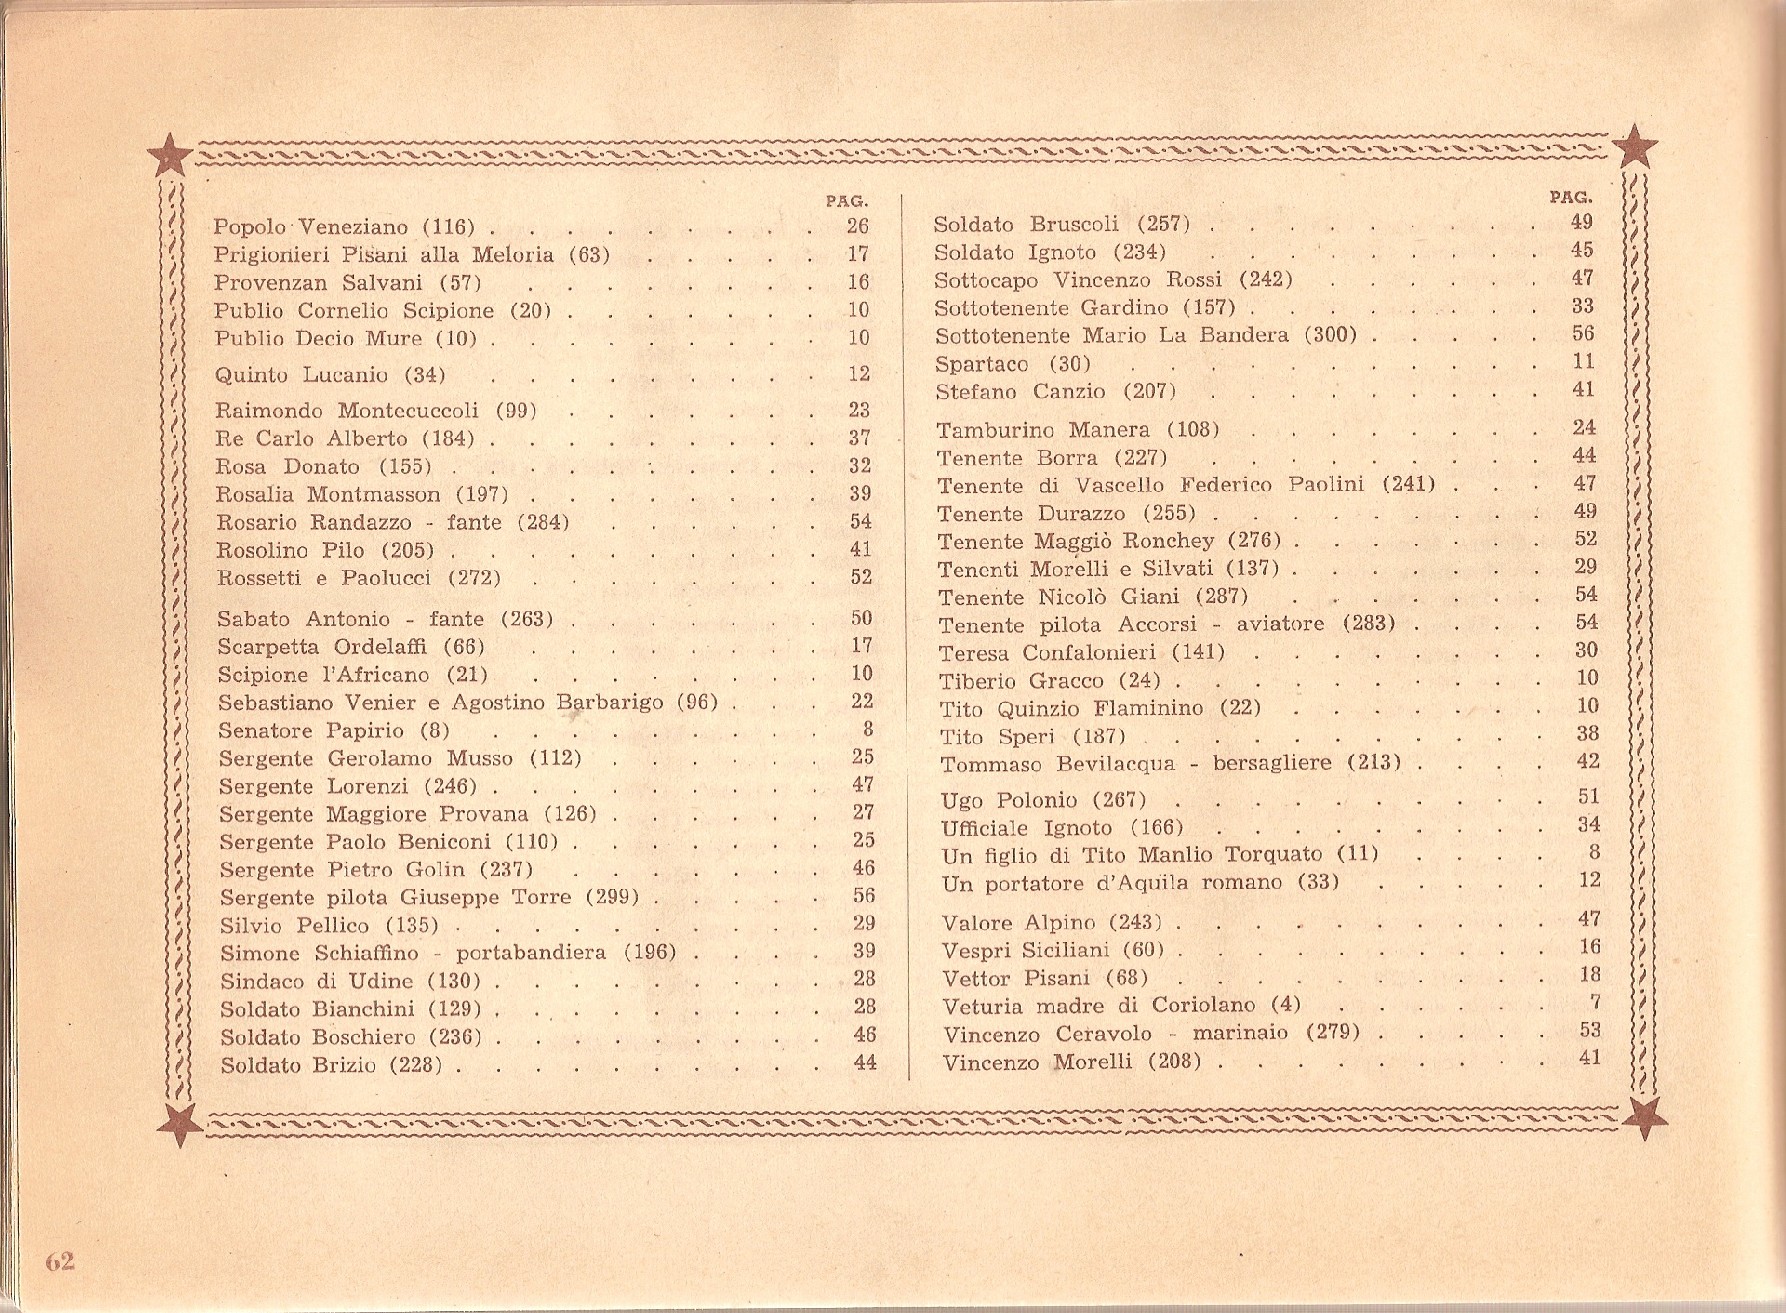 PAG.
Popolo Veneziano (116) . . . . . . . . . 26
Prigionieri Pisani alla Meloria (63) . . . . . 17
Provenzan Salvani (57) . . . . . . . . 16
Publio Cornelio Scipione (20) . . . . . . . 10
Publio Decio Mure (10) . . . . . . . . . 10
Quinto Lucanio (34) . . . . . . . . . 12
Raimondo Montecuccoli (99) . . . . . . . 23
Re Carlo Alberto (184) . . . . . . . . . 37
Rosa Donato (155) . . . . . . . . . . 32
Rosalia Montmasson (197) . . . . . . . . 39
Rosario Randazzo - fante (284) . . . . . . 54
Rosolino Pilo (205) . . . . . . . . . . 41
Rossetti e Paolucci (272) . . . . . . . . 52
Sabato Antonio - fante (263) . . . . . . . 50
Scarpetta Ordelaffi (66) . . . . . . . . 17
Scipione l'Africano (21) . . . . . . . . 10
Sebastiano Venier e Agostino Barbarigo (96) . . . 22
Senatore Papirio (8) . . . . . . . . . 8
Sergente Gerolamo Musso (112) . . . . . . 25
Sergente Lorenzi (246) . . . . . . . . . 47
Sergente Maggiore Provana (126) . . . . . . 27
Sergente Paolo Beniconi (110) . . . . . . . 25
Sergente Pietro Golin (237) . . . . . . . 46
Sergente pilota Giuseppe Torre (299) . . . . . 56
Silvio Pellico (135) . . . . . . . . . . 29
Simone Schiaffino - portabandiera (196) . . . . 39
Sindaco di Udine (130) . . . . . . . . . 28
Soldato Bianchini (129) . . . . . . . . . 28
Soldato Boschiero (236) . . . . . . . . . 46
Soldato Brizio (228) . . . . . . . . . . 44
PAG.
Soldato Bruscoli (257) . . . . . . . . . 49
Soldato Ignoto (234) . . . . . . . . . 45
Sottocapo Vincenzo Rossi (242) . . . . . . 47
Sottotenente Gardino (157) . . . . . . . . 33
Sottotenente Mario La Bandera (300) . . . . . 56
Spartaco (30) . . . . . . . . . . . 11
Stefano Canzio (207) . . . . . . . . . 41
Tamburino Manera (108) . . . . . . . . 24
Tenente Borra (227) . . . . . . . . . 44
Tenente di Vascello Federico Paolini (241) . . . 47
Tenente Durazzo (255) . . . . . . . . . 49
Tenente Maggiò Ronchey (276) . . . . . . . 52
Tenenti Morelli e Silvati (137) . . . . . . . 29
Tenente Nicolò Giani (287) . . . . . . . 54
Tenente pilota Accorsi - aviatore (283) . . . . 54
Teresa Confalonieri (141) . . . . . . . . 30
Tiberio Gracco (24) . . . . . . . . . . 10
Tito Quinzio Flaminino (22) . . . . . . . 10
Tito Speri (187) . . . . . . . . . . 38
Tommaso Bevilacqua - bersagliere (213) . . . . 42
Ugo Polonio (267) . . . . . . . . . . 51
Ufficiale Ignoto (166) . . . . . . . . . 34
Un figlio di Tito Manlio Torquato (11) . . . . 8
Un portatore d'Aquila romano (33) . . . . . 12
Valore Alpino (243) . . . . . . . . . . 47
Vespri Siciliani (60) . . . . . . . . . . 16
Vettor Pisani (68) . . . . . . . . . . 18
Veturia madre di Coriolano (4) . . . . . . 7
Vincenzo Ceravolo - marinaio (279) . . . . . 53
Vincenzo Morelli (208) . . . . . . . . . 41
62